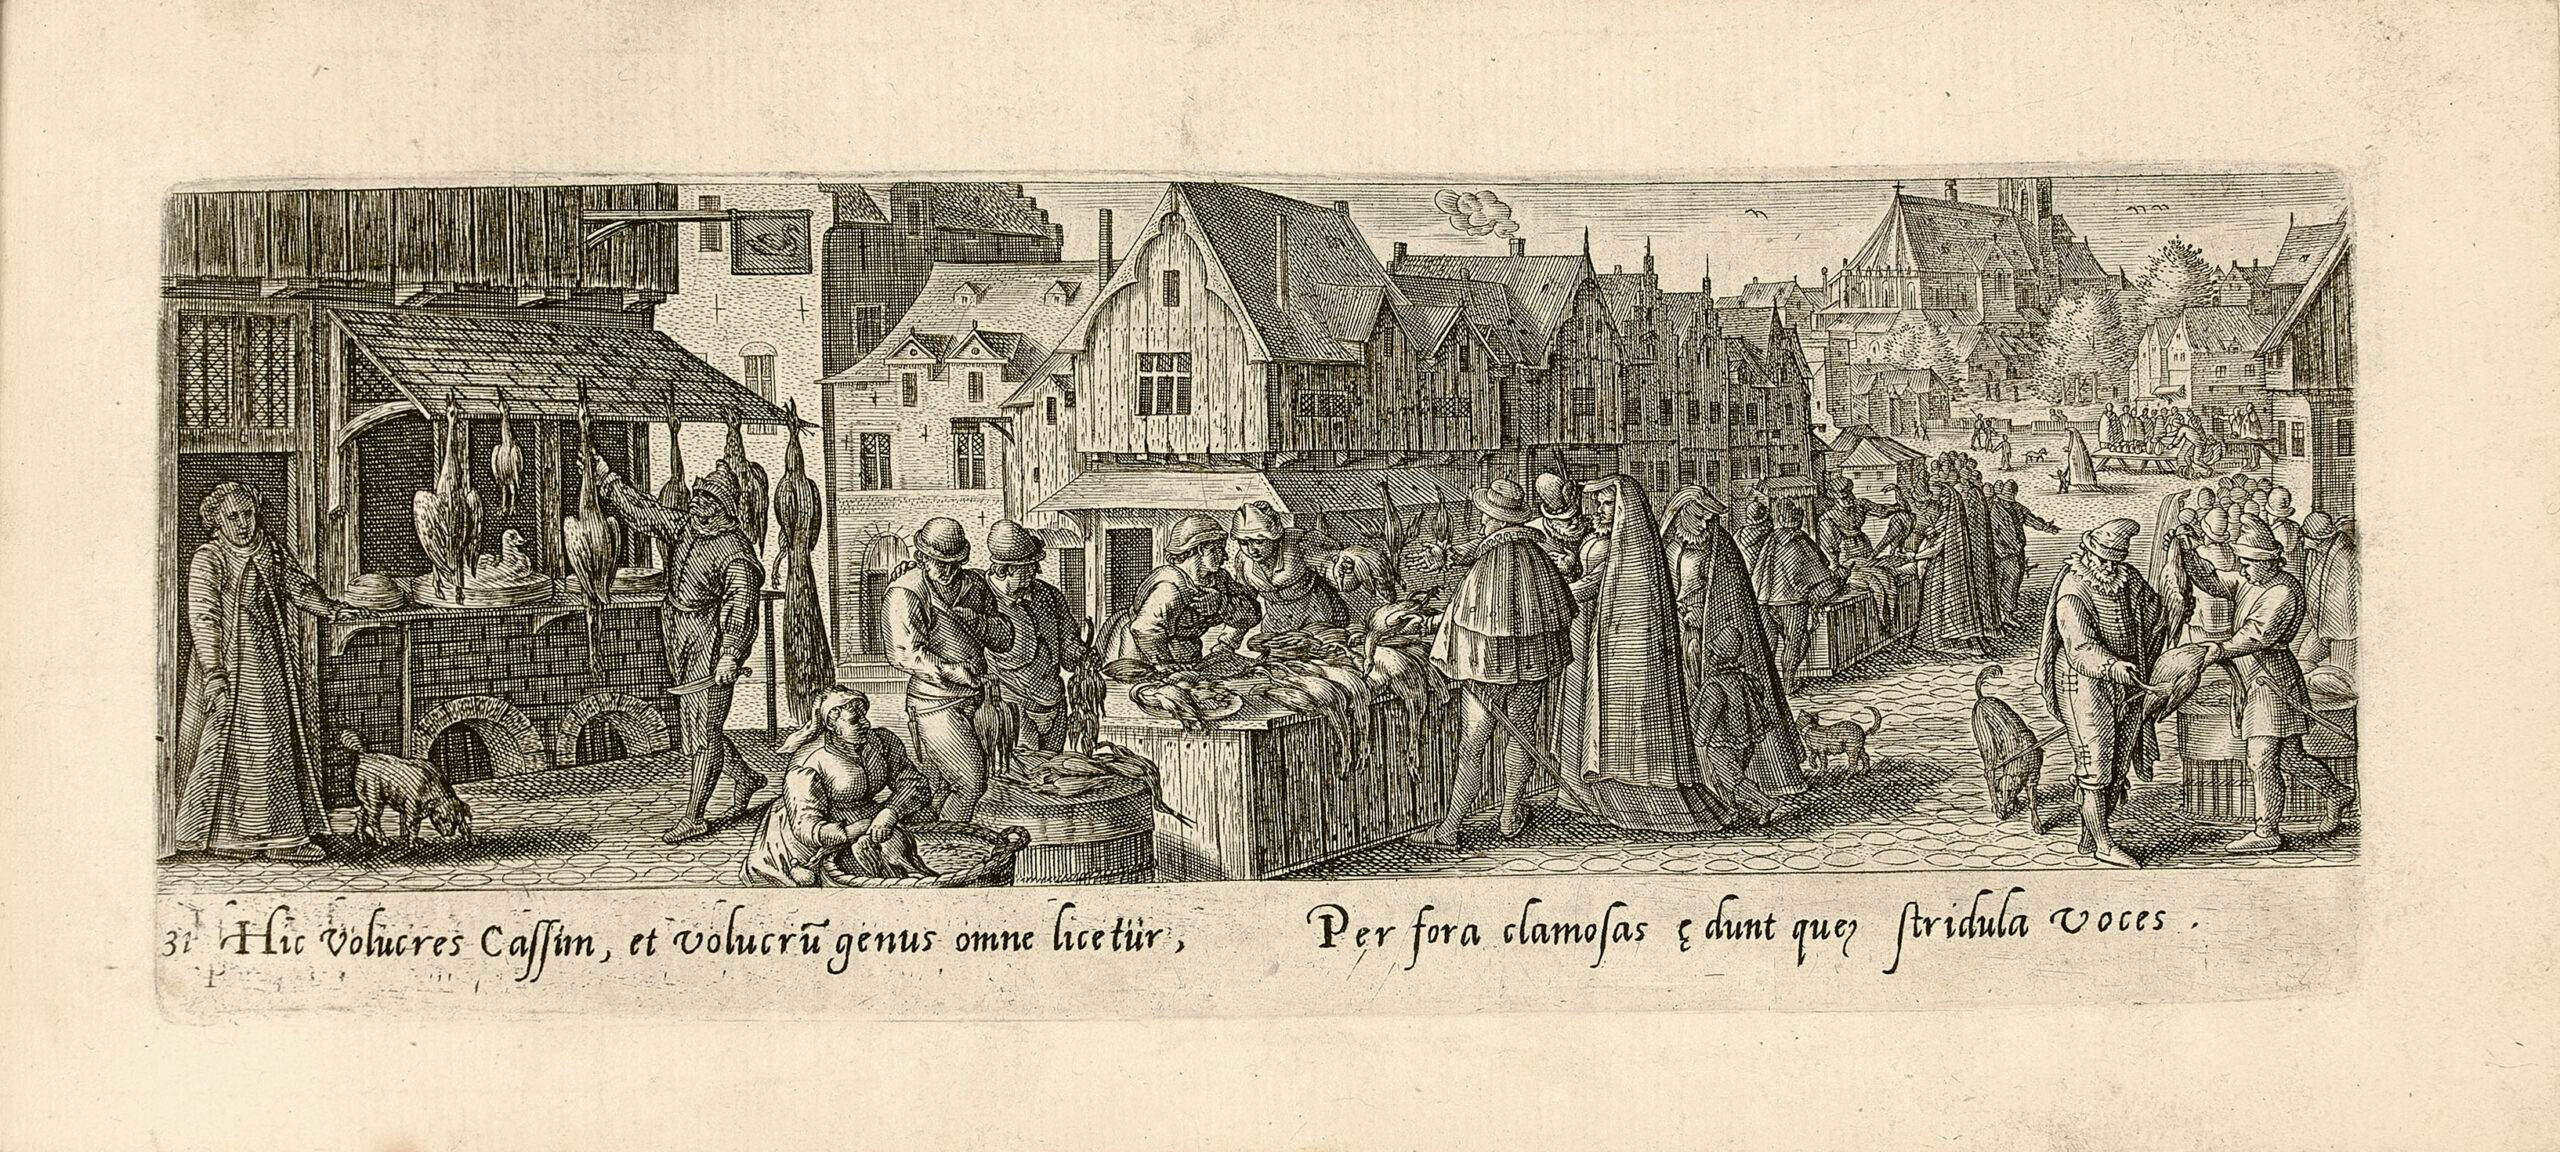 31 Hic volucres Cassim, et volucrũ genus omne licetür, Per fora clamosas ędunt quęꝫ stridula voces.